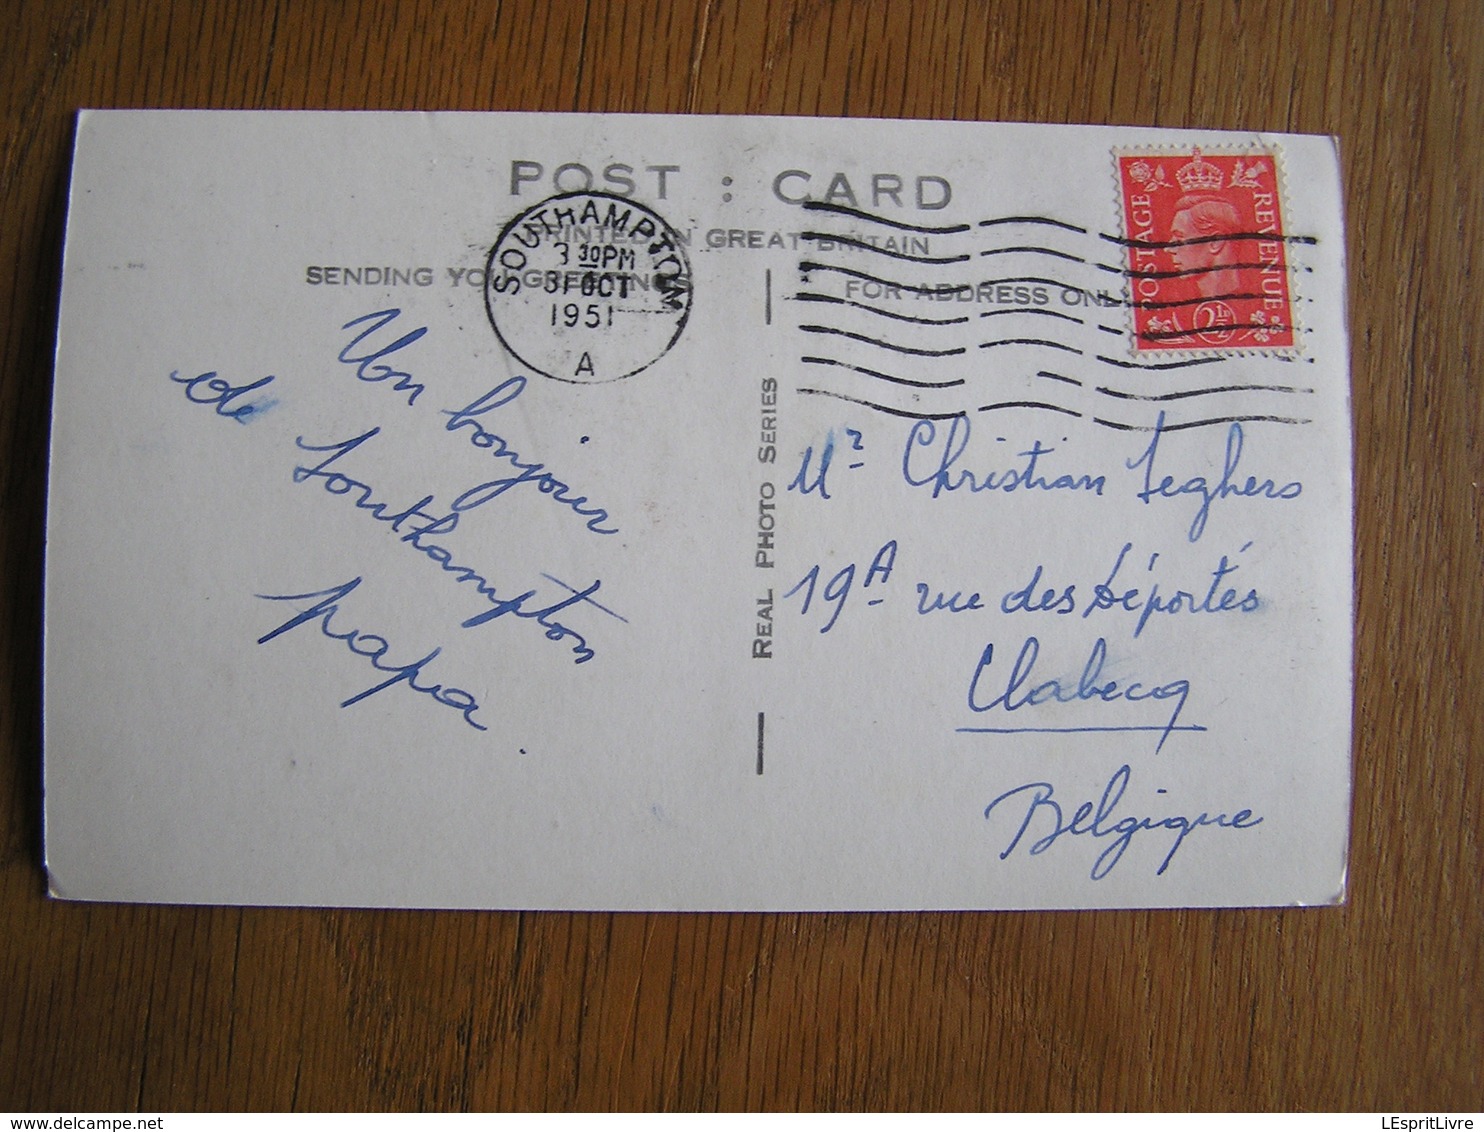 POST : CARD
PRINTED IN GREAT BRITAIN
SENDING YOU GREETINGS
FOR ADDRESS ONLY
SOUTHAMPTON
3 30 PM
31 OCT
1951
A
POSTAGE
REVENUE
2½
REAL PHOTO SERIES
Un bonjour
de Southampton
papa.
Mr Christian Seghers
19A rue des Déportés
Clabecq
Belgique
LEspritLivre